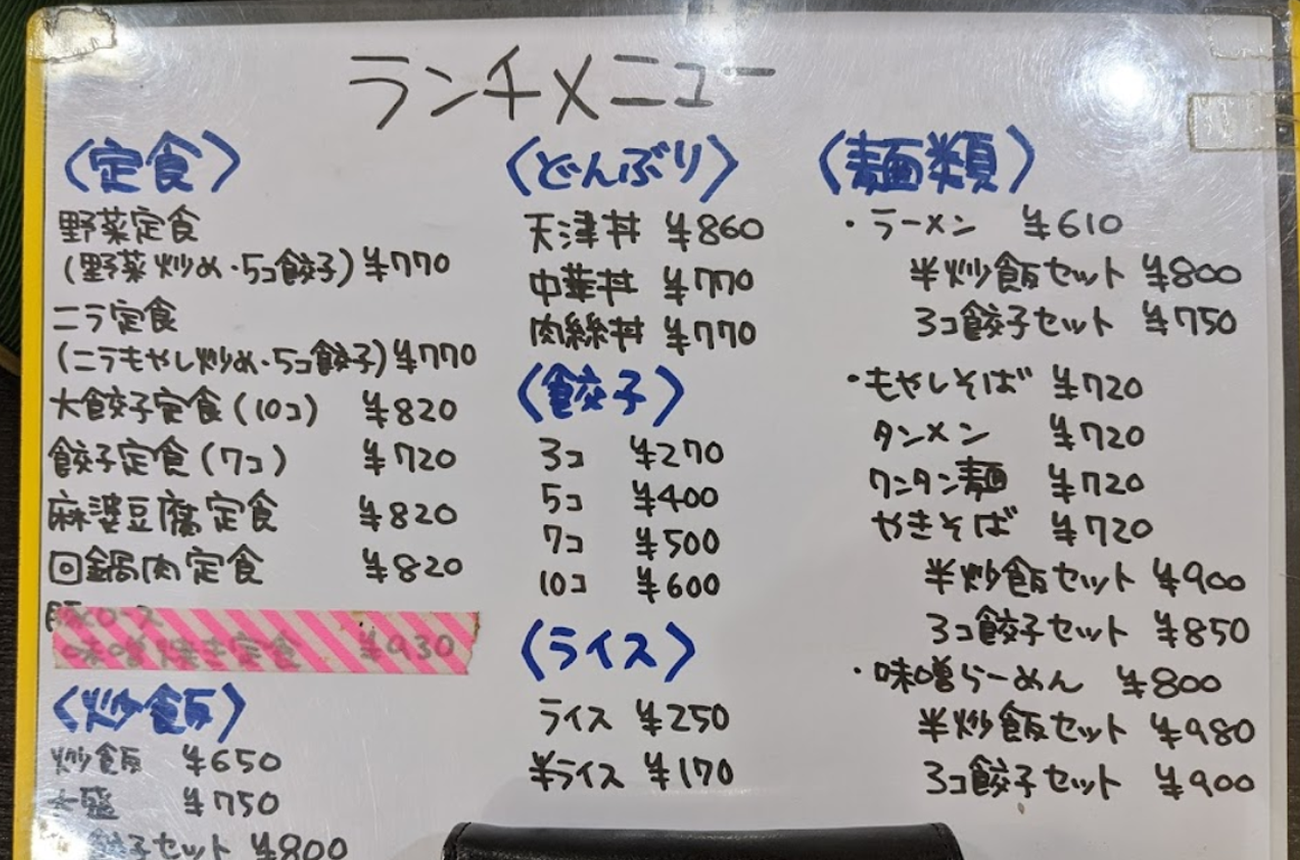 ランチメニュー
〈定食〉
野菜定食
(野菜炒め・5コ餃子) ¥770
ニラ定食
(ニラもやし炒め・5コ餃子) ¥770
大餃子定食(10コ) ¥820
餃子定食(7コ) ¥720
麻婆豆腐定食 ¥820
回鍋肉定食 ¥820
豚ロース
味噌焼き定食 ¥930
〈炒飯〉
炒飯 ¥650
大盛 ¥750
餃子セット ¥800
〈どんぶり〉
天津丼 ¥860
中華丼 ¥770
肉絲丼 ¥770
〈餃子〉
3コ ¥270
5コ ¥400
7コ ¥500
10コ ¥600
〈ライス〉
ライス ¥250
半ライス ¥170
〈麺類〉
・ラーメン ¥610
半炒飯セット ¥800
3コ餃子セット ¥750
・もやしそば ¥720
タンメン ¥720
ワンタン麺 ¥720
やきそば ¥720
半炒飯セット ¥900
3コ餃子セット ¥850
・味噌らーめん ¥800
半炒飯セット ¥980
3コ餃子セット ¥900